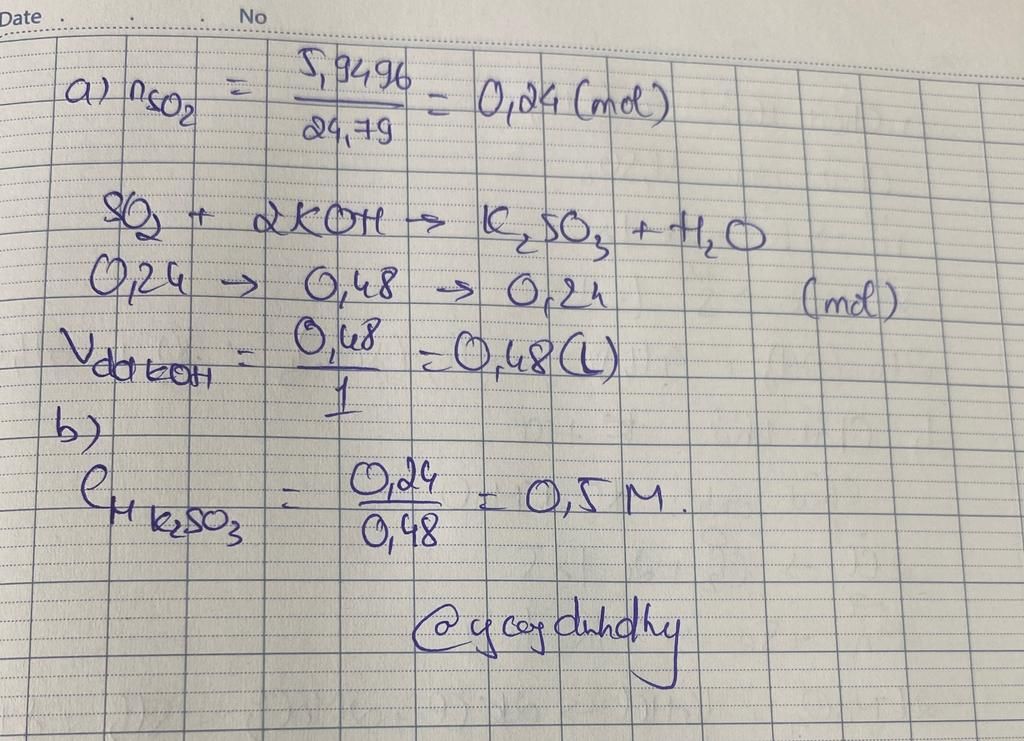 Date . . . No
a) nSO2 = 5,9496 / 24,79 = 0,24 (mol)
SO2 + 2KOH → K2SO3 + H2O
0,24 → 0,48 → 0,24 (mol)
Vdd KOH = 0,48 / 1 = 0,48 (L)
b)
CM K2SO3 = 0,24 / 0,48 = 0,5 M.